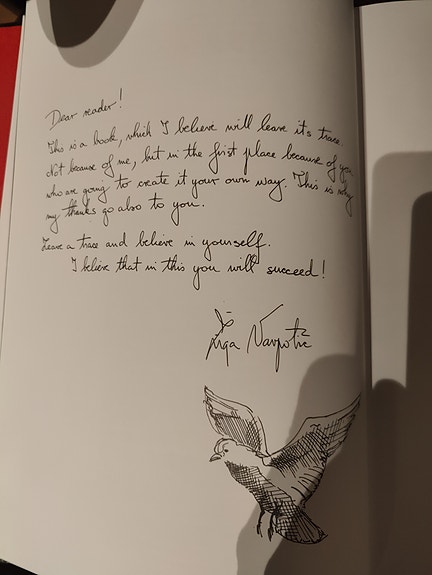 Dear reader!
This is a book, which I believe will leave its trace.
Not because of me, but in the first place because of you
who are going to create it your own way. This is why
my thanks go also to you.
Leave a trace and believe in yourself.
I believe that in this you will succeed!